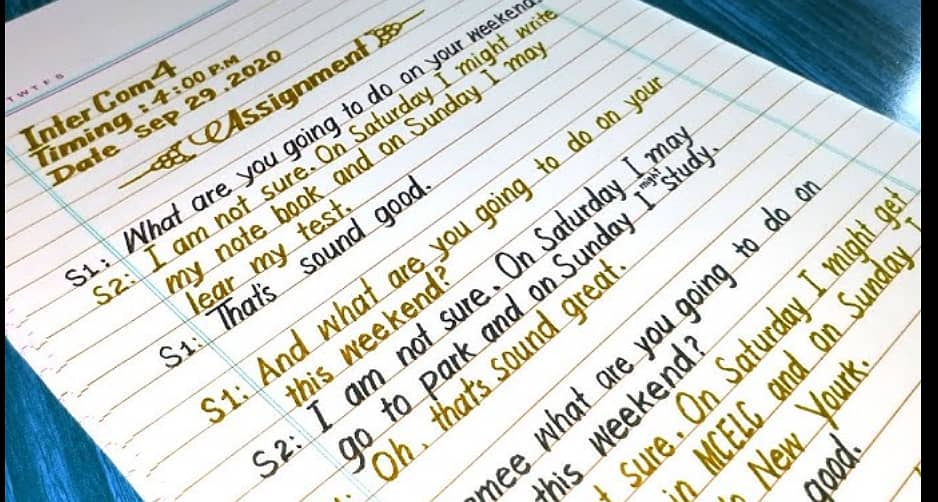 TWTFS
Inter Com 4
Timing : 4:00 P.M
Date Sep 29, 2020
Assignment
S1: What are you going to do on your weekend
S2: I am not sure. On Saturday I might write
my note book and on Sunday I may
lear my test.
S1: That's sound good.
S1: And what are you going to do on your
this weekend?
S2: I am not sure. On Saturday I may
go to park and on Sunday I might study.
Oh, that's sound great.
what are you going to do on
this weekend?
sure. On Saturday I might get
in MCELC and on Sunday I
New Yourk.
good.